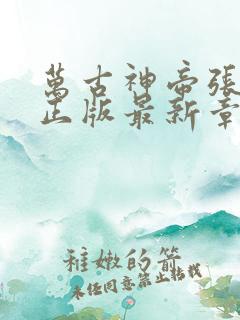 萬古神帝張
正版最新章
稚嫩的箭
未经同意禁止转载